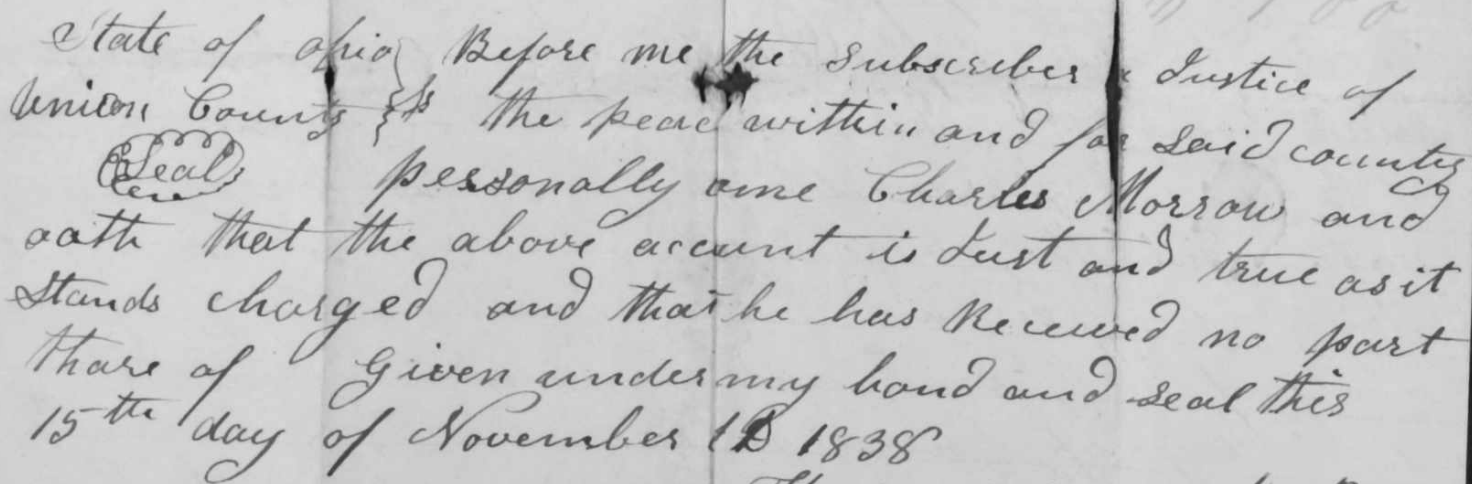 State of ohio } Before me the Subscriber a Justice of
Union County } ss the peac within and for Said county
Seal personally ame Charles Morrow and
oath that the above account is Just and true as it
Stands charged and that he has Received no part
thare of Given under my hand and seal this
15th day of November AD 1838